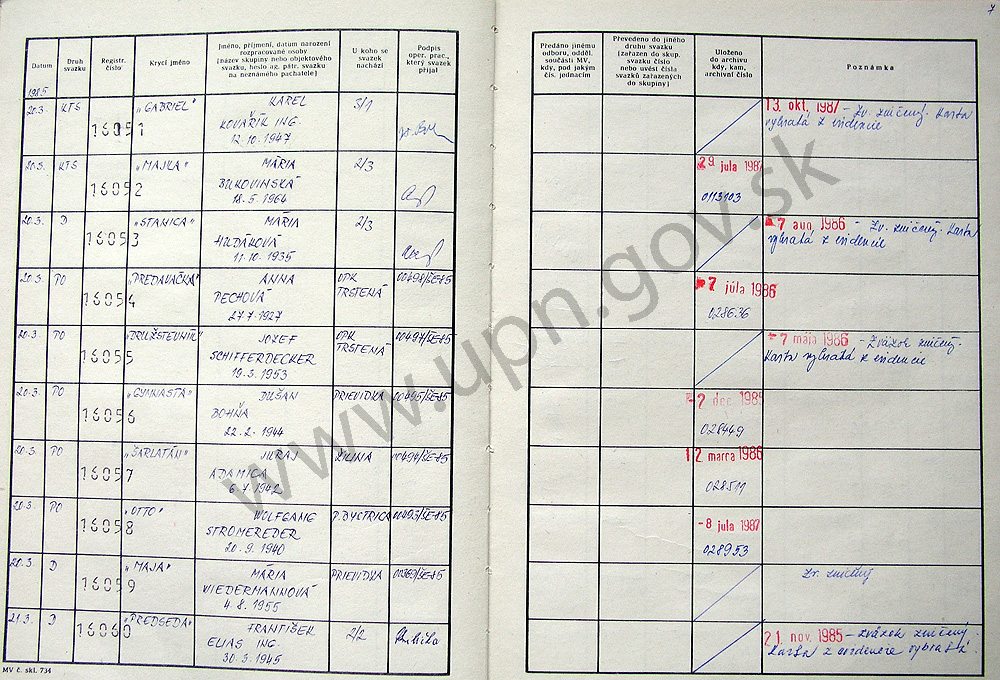 7
Datum
Druh svazku
Registr. číslo
Krycí jméno
Jméno, příjmení, datum narození
rozpracované osoby
[název skupiny nebo objektového
svazku, heslo ag. pátr. svazku
na neznámého pachatele]
U koho se
svazek
nachází
Podpis
oper. prac.,
který svazek
přijal
Předáno jinému
odboru, odděl.
součásti MV,
kdy, pod jakým
čís. jednacím
Převedeno do jiného
druhu svazku
[zařazen do skup.
svazku číslo
nebo uvést čísla
svazků zařazených
do skupiny]
Uloženo
do archivu
kdy, kam,
archivní číslo
Poznámka
1985
20.3. KTS 16051 „GABRIEL" KAREL 5/1
KOVAŘÍK ING.
12.10.1947
13. okt. 1987 - Zv. zničený. Karta
vybratá z evidencie
20.3. KTS 16052 „MAJKA" MÁRIA 2/3
BUKOVINSKÁ
18.5.1964
29 júla 1987
0113103
20.3. D 16053 „STANICA" MÁRIA 2/3
HULDÁKOVÁ
11.10.1935
7 aug 1986 - Zv. zničený. Karta
vybratá z evidencie
20.3. PO 16054 „PREDAVAČKA" ANNA OPK TRSTENÁ 00498/ŠE-85
PECHOVÁ
27.7.1927
7 júla 1986
028636
20.3. PO 16055 „DRUŽSTEVNÍK" JOZEF OPK TRSTENÁ 00497/ŠE-85
SCHIFFERDECKER
19.3.1953
7 mája 1986 - Zväzok zničený.
Karta vybratá z evidencie
20.3. PO 16056 „GYMNASTA" DUŠAN PRIEVIDZA 00495/ŠE-85
BOHŇA
22.2.1944
-2 dec 1985
028449
20.3. PO 16057 „ŠARLATÁN" JURAJ ŽILINA 00494/ŠE-85
ADAMICA
6.7.1942
12. marca 1986
028511
20.3. PO 16058 „OTTO" WOLFGANG P. BYSTRICA 00493/ŠE-85
STROMEREDER
20.9.1940
-8 júla 1987
028953
20.3. D 16059 „MAJA" MÁRIA PRIEVIDZA 00369/ŠE-85
WIEDERMANNOVÁ
4.8.1955
Zv. zničený
21.3. D 16060 „PREDSEDA" FRANTIŠEK 2/2
ELIAS ING.
30.3.1945
21. nov. 1985 - Zväzok zničený.
Karta z evidencie vybratá.
MV č. skl. 734
www.upn.gov.sk